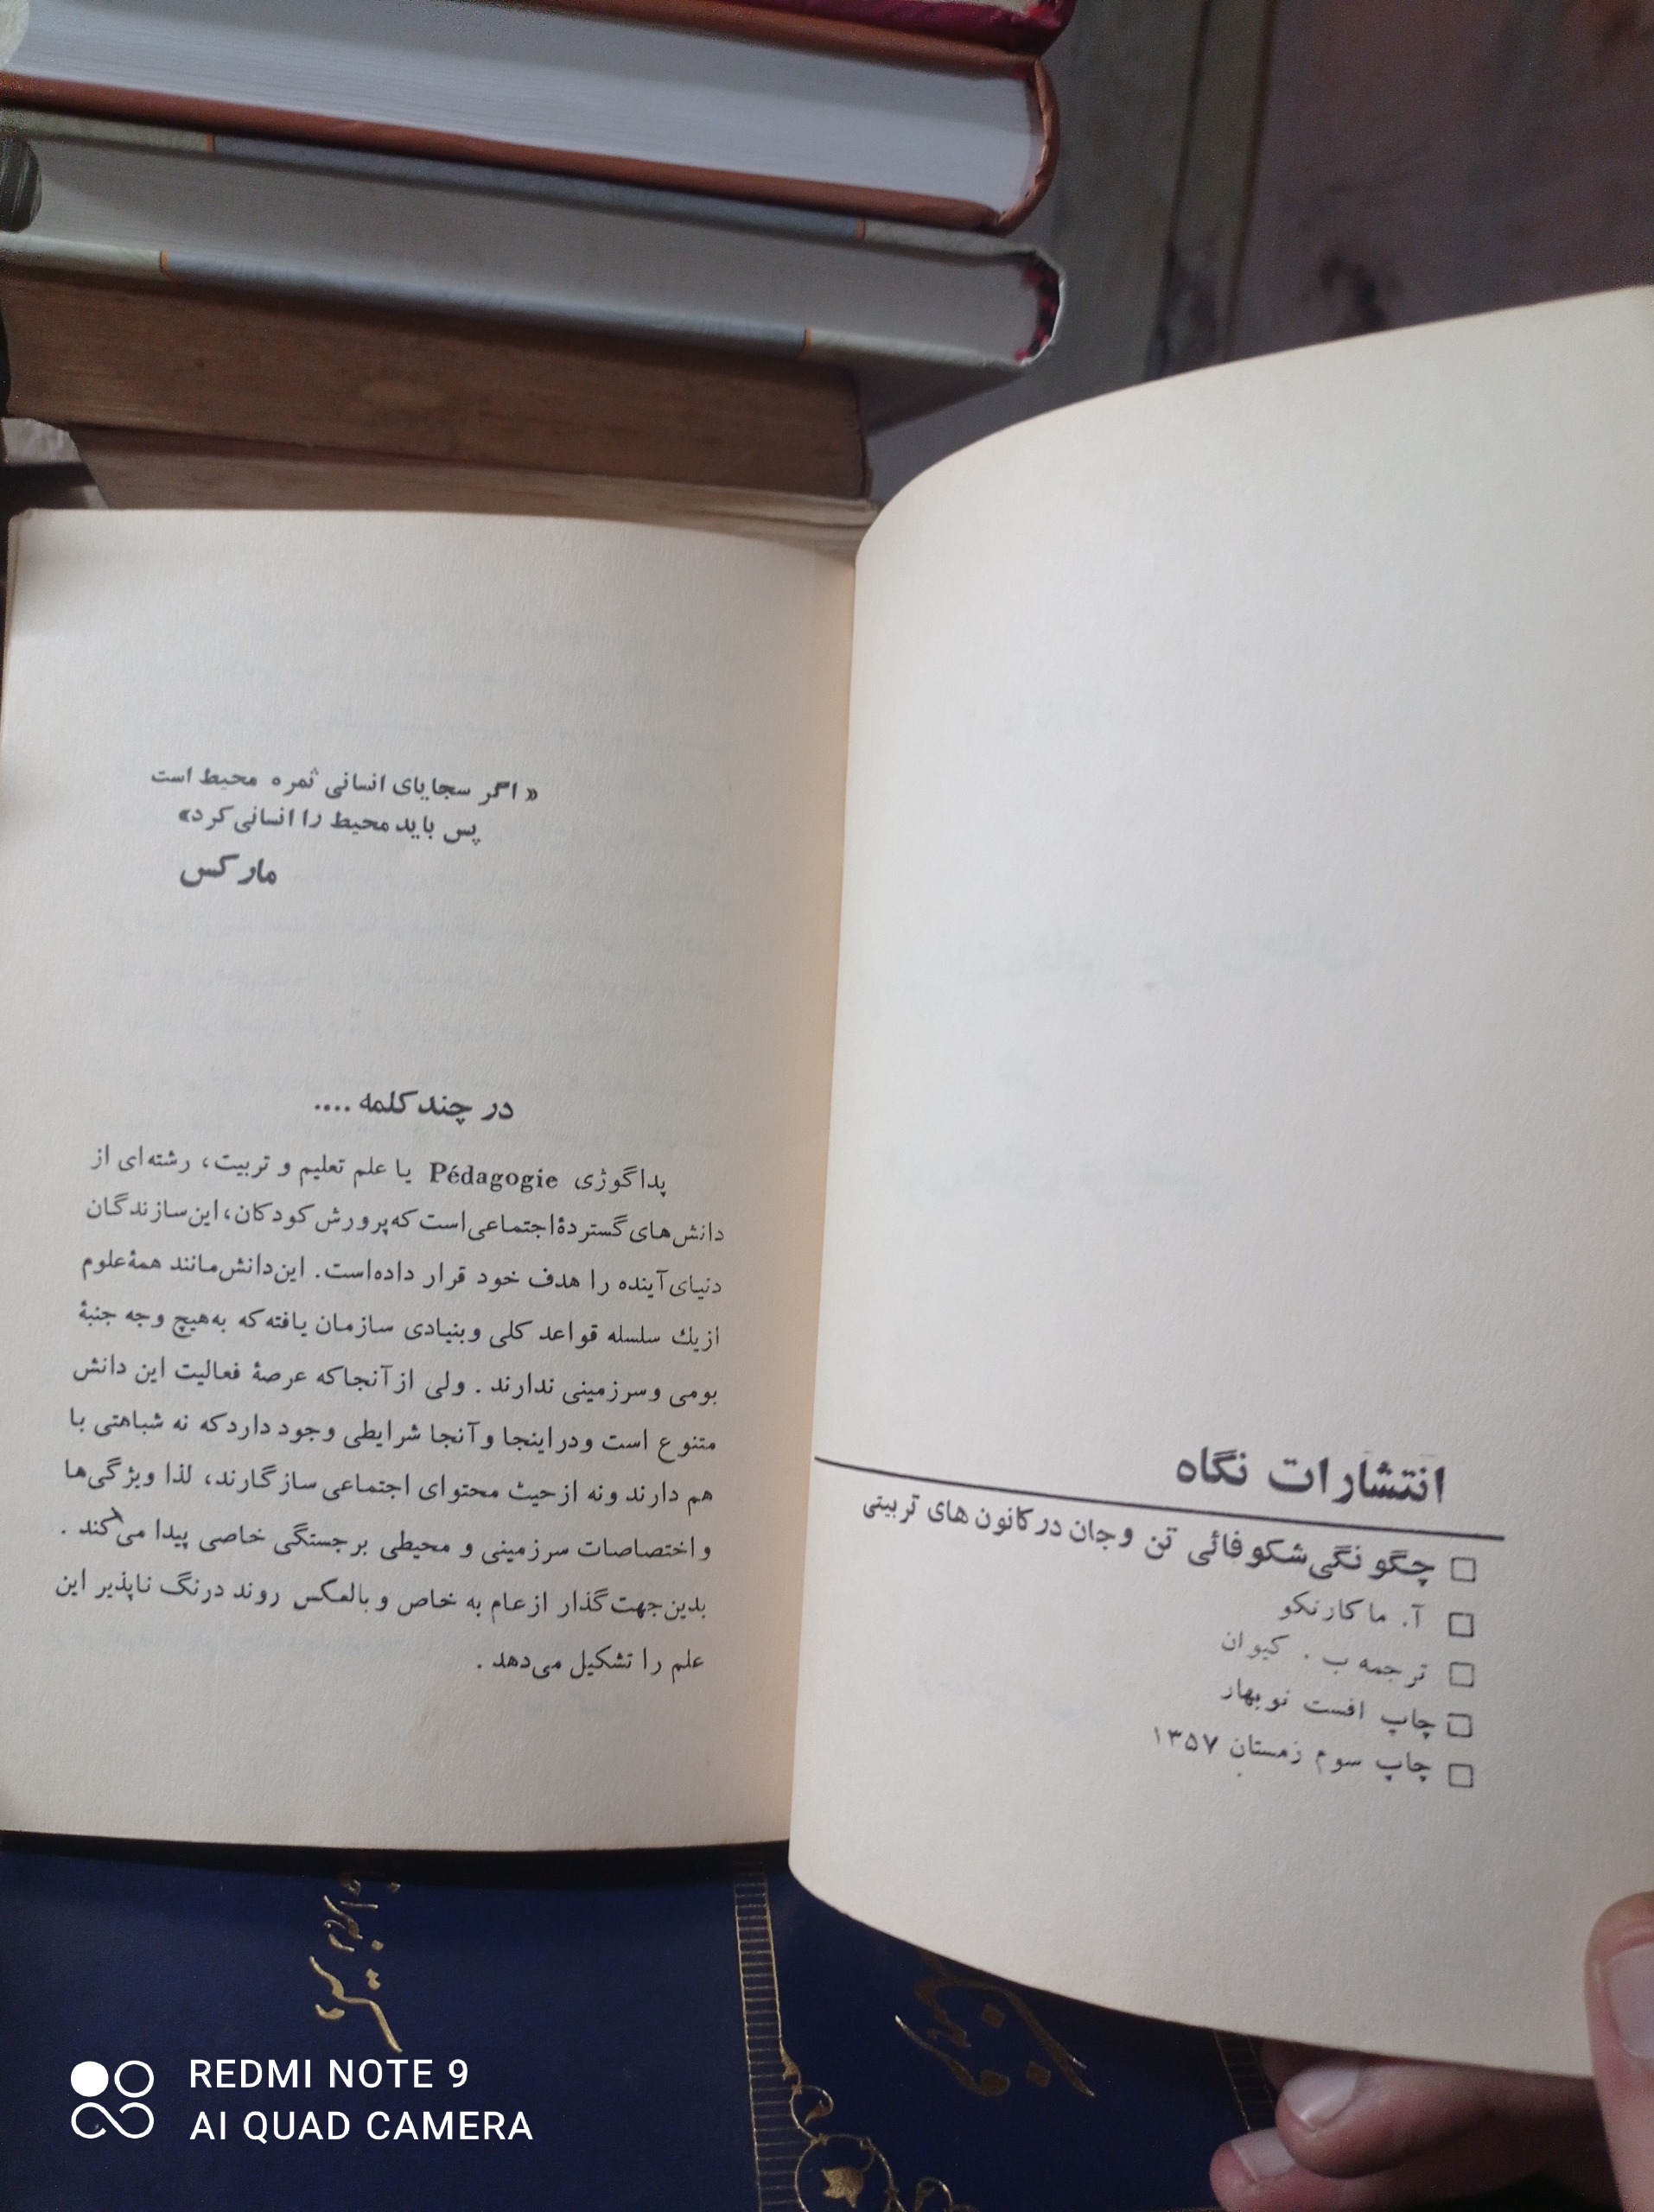 انتشارات نگاه
□ چگونگی شکوفائی تن و جان در کانون های تربیتی
□ آ. ماکارنکو
□ ترجمه ب . کیوان
□ چاپ افست نوبهار
□ چاپ سوم زمستان ۱۳۵۷
«اگر سجایای انسانی ثمره محیط است
پس باید محیط را انسانی کرد»
مارکس
در چند کلمه ....
پداگوژی Pédagogie یا علم تعلیم و تربیت، رشته‌ای از
دانش‌های گستردهٔ اجتماعی است که پرورش کودکان، این سازندگان
دنیای آینده را هدف خود قرار داده‌است. این دانش مانند همهٔ علوم
از یك سلسله قواعد کلی و بنیادی سازمان یافته که به‌هیچ وجه جنبهٔ
بومی و سرزمینی ندارند . ولی از آنجا که عرصهٔ فعالیت این دانش
متنوع است و در اینجا و آنجا شرایطی وجود دارد که نه شباهتی با
هم دارند و نه از حیث محتوای اجتماعی سازگارند، لذا ویژگی‌ها
و اختصاصات سرزمینی و محیطی برجستگی خاصی پیدا می‌کند .
بدین جهت گذار از عام به خاص و بالعکس روند درنگ ناپذیر این
علم را تشکیل می‌دهد .
REDMI NOTE 9
AI QUAD CAMERA